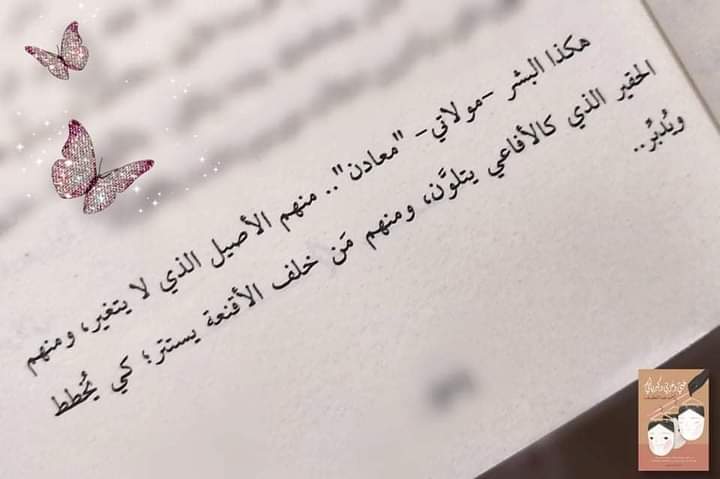 هكذا البشر -مولاتي- "معادن".. منهم الأصيل الذي لا يتغير، ومنهم
الحقير الذي كالأفاعي يتلوَّن، ومنهم مَن خلف الأقنعة يستتر؛ كي يُخطط
ويُدبِّر..